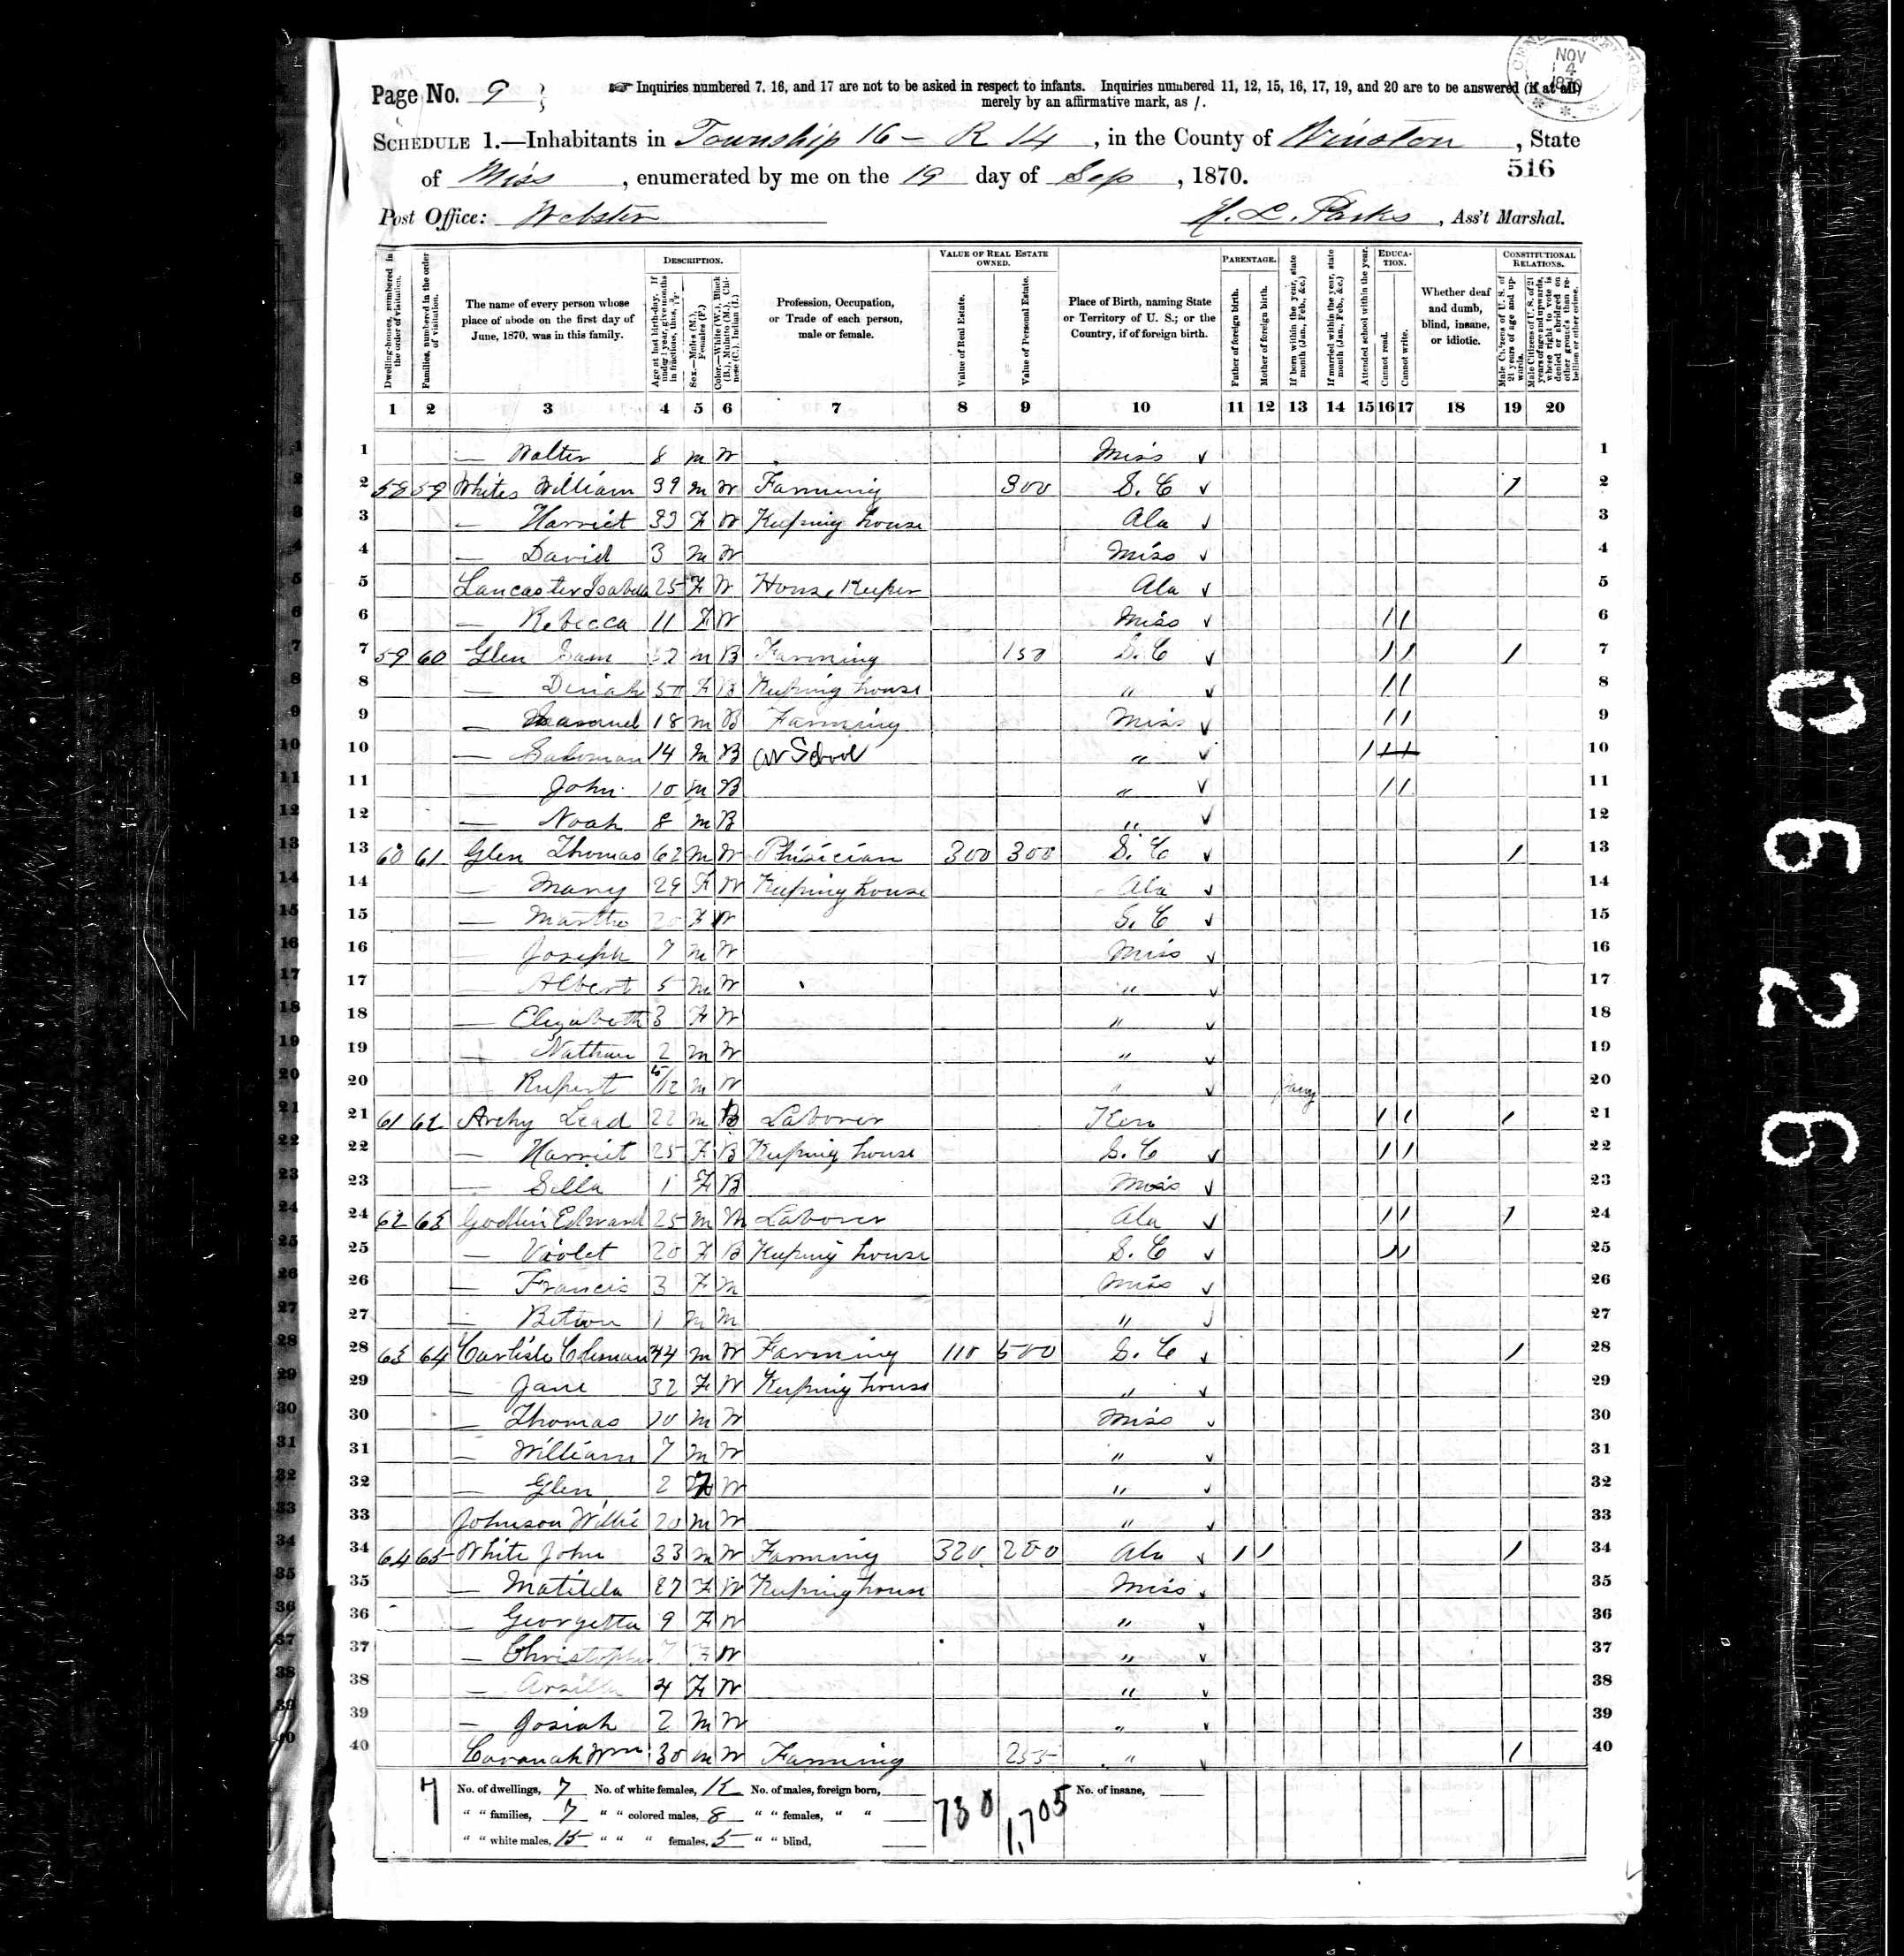 NOV 4 1870
Page No. 9
Inquiries numbered 7, 16, and 17 are not to be asked in respect to infants. Inquiries numbered 11, 12, 15, 16, 17, 19, and 20 are to be answered (if at all)
merely by an affirmative mark, as /.
SCHEDULE 1.—Inhabitants in Township 16 – R 14, in the County of Winston, State
516
of Miss, enumerated by me on the 19 day of Sep, 1870.
Post Office: Webster H. L. Parks, Ass't Marshal.
DESCRIPTION. VALUE OF REAL ESTATE OWNED. PARENTAGE. EDUCATION. CONSTITUTIONAL RELATIONS.
Dwelling-houses, numbered in the order of visitation.
Families, numbered in the order of visitation.
The name of every person whose place of abode on the first day of June, 1870, was in this family.
Age at last birth-day. If under 1 year, give months in fractions, thus, 3/12.
Sex.—Males (M.), Females (F.)
Color.—White (W.), Black (B.), Mulatto (M.), Chinese (C.), Indian (I.)
Profession, Occupation, or Trade of each person, male or female.
Value of Real Estate.
Value of Personal Estate.
Place of Birth, naming State or Territory of U. S.; or the Country, if of foreign birth.
Father of foreign birth.
Mother of foreign birth.
If born within the year, state month (Jan., Feb., &c.)
If married within the year, state month (Jan., Feb., &c.)
Attended school within the year.
Cannot read.
Cannot write.
Whether deaf and dumb, blind, insane, or idiotic.
Male Citizens of U. S. of 21 years of age and upwards.
Male Citizens of U. S. of 21 years of age and upwards, whose right to vote is denied or abridged on other grounds than rebellion or other crime.
1 2 3 4 5 6 7 8 9 10 11 12 13 14 15 16 17 18 19 20
1 — Walter 8 m W Miss 1
2 58 59 Whites William 39 m W Farming 300 S. C / 2
3 — Harriet 33 F W Keeping house Ala 3
4 — David 3 m W Miss 4
5 Lancaster Isabella 25 F W House Keeper Ala 5
6 — Rebecca 11 F W Miss / / 6
7 59 60 Glen Sam m B Farming 150 S. C / / / 7
8 — Diniah 50 F B Keeping house " / / 8
9 — 18 m B Farming Miss / / 9
10 — Saloman 14 m B At School " / / / 10
11 — John 10 m B " / / 11
12 — Noah 8 m B " 12
13 60 61 Glen Thomas 62 m W Phisician 300 300 S. C / 13
14 — Mary 29 F W Keeping house Ala 14
15 — Martha 20 F W S. C 15
16 — Joseph 7 m W Miss 16
17 — Albert 5 m W " 17
18 — Elizabeth 3 F W " 18
19 — Nathan 2 m W " 19
20 — Rupert 5/12 m W " Jany 20
21 61 62 Archy Lead 22 m B Laborer Ken / / / 21
22 — Harriet 25 F B Keeping house S. C / / 22
23 — Silla 1 F B Miss 23
24 62 63 Edward 25 m M Laborer Ala / / / 24
25 — Violet 20 F B Keeping house S. C / / 25
26 — Francis 3 F M Miss 26
27 — 1 m M " 27
28 63 64 Carlisle Coleman 44 m W Farming 110 500 S. C / 28
29 — Jane 32 F W Keeping house " 29
30 — Thomas 10 m W Miss 30
31 — William 7 m W " 31
32 — Glen 2 W " 32
33 Johnson Willie 20 m W " 33
34 64 65 White John 33 m W Farming 320 200 Ala / / / 34
35 — Matilda 27 F W Keeping house Miss 35
36 — Georgetta 9 F W " 36
37 — Christopher 7 F W " 37
38 — Arzilla 4 F W " 38
39 — Josiah 2 m W " 39
40 Cavanah Wm 30 m W Farming 255 " / 40
7 No. of dwellings, 7 No. of white females, 12 No. of males, foreign born, 730 1,705 No. of insane,
" " families, 7 " " colored males, 8 " " females, " "
" " white males, 15 " " " females, 5 " " blind,
0 6 2 6